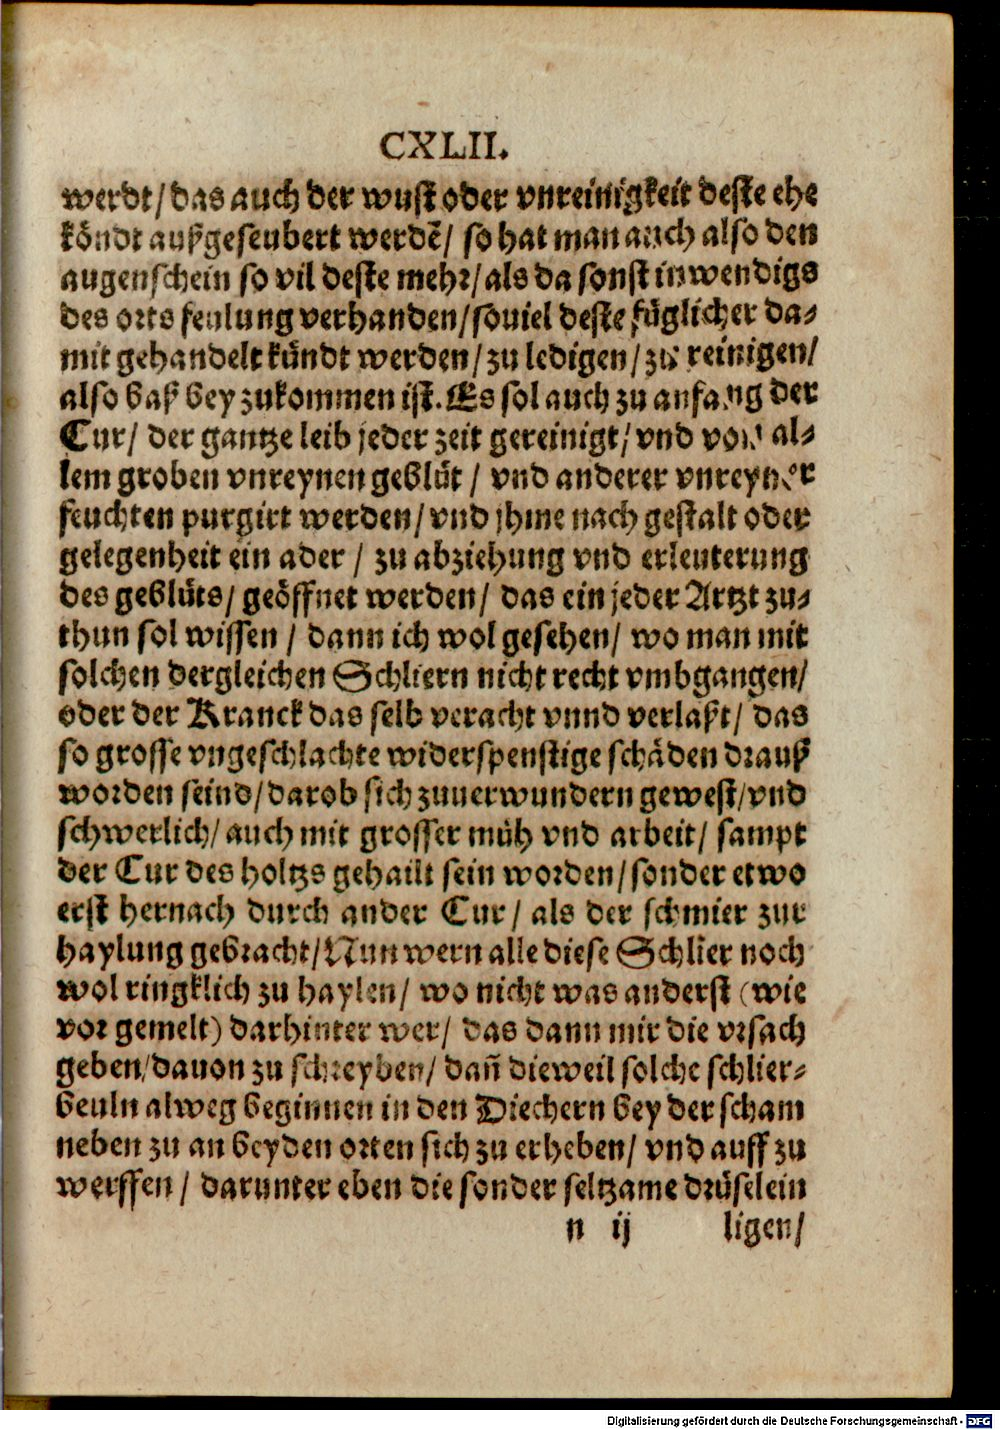 CXLII.
werdt/das auch der wust oder vnreinigkeit deste ehe
köndt außgeseubert werdē/ so hat man auch also den
augenschein so vil deste mehr/als da sonst inwendigs
des orts feulung verhanden/souiel deste füglicher da⸗
mit gehandelt kündt werden/zu ledigen/zu reinigen/
also baß bey zukommen ist. Es sol auch zu anfang der
Cur/ der gantze leib jeder zeit gereinigt/vnd von al⸗
lem groben vnreynen geblüt/ vnd anderer vnreyner
feuchten purgirt werden/vnd jhme nach gestalt oder
gelegenheit ein ader/ zu abziehung vnd erleuterung
des geblüts/ geöffnet werden/ das ein jeder Artzt zu⸗
thun sol wissen/ dann ich wol gesehen/ wo man mit
solchen dergleichen Schliern nicht recht vmbgangen/
oder der Kranck das selb veracht vnnd verlaßt/ das
so grosse vngeschlachte widerspenstige schäden drauß
worden seind/darob sich zuuerwundern gewest/vnd
schwerlich/auch mit grosser müh vnd arbeit/ sampt
der Cur des holtzs gehailt sein worden/sonder etwo
erst hernach durch ander Cur/ als der schmier zur
haylung gebracht/Nun wern alle diese Schlier noch
wol ringklich zu haylen/ wo nicht was anderst (wie
vor gemelt) darhinter wer/ das dann mir die vrsach
geben/dauon zu schreyben/ dañ dieweil solche schlier⸗
beuln alweg beginnen in den Diechern bey der scham
neben zu an beyden orten sich zu erheben/ vnd auff zu
werffen/ darunter eben die sonder seltzame drüselein
n ij ligen/
Digitalisierung gefördert durch die Deutsche Forschungsgemeinschaft - DFG